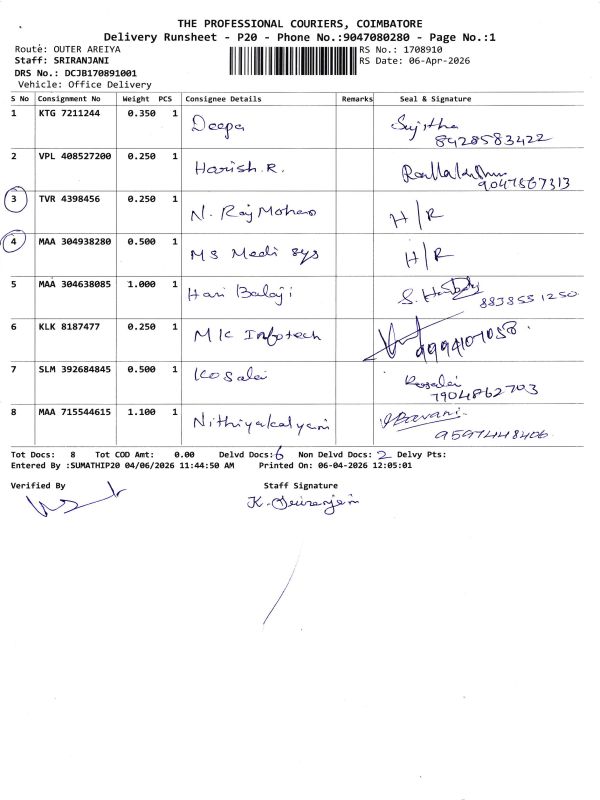 THE PROFESSIONAL COURIERS, COIMBATORE
Delivery Runsheet - P20 - Phone No.:9047080280 - Page No.:1
Route: OUTER AREIYA
RS No.: 1708910
Staff: SRIRANJANI
RS Date: 06-Apr-2026
DRS No.: DCJB170891001
Vehicle: Office Delivery
S No Consignment No Weight PCS Consignee Details Remarks Seal & Signature
1 KTG 7211244 0.350 1 Deepa Sujitha
8428583422
2 VPL 408527200 0.250 1 Harish.R.
9047567313
3 TVR 4398456 0.250 1 N. Raj Mohan H/R
4 MAA 304938280 0.500 1 MS Medi sys H/R
5 MAA 304638085 1.000 1 Hari Balaji
6 KLK 8187477 0.250 1 MK Infotech
7 SLM 392684845 0.500 1 Kosalai Kosalai
7904862703
8 MAA 715544615 1.100 1 Nithiyakalyani
9597448406
Tot Docs: 8 Tot COD Amt: 0.00 Delvd Docs: 6 Non Delvd Docs: 2 Delvy Pts:
Entered By :SUMATHIP20 04/06/2026 11:44:50 AM Printed On: 06-04-2026 12:05:01
Verified By Staff Signature